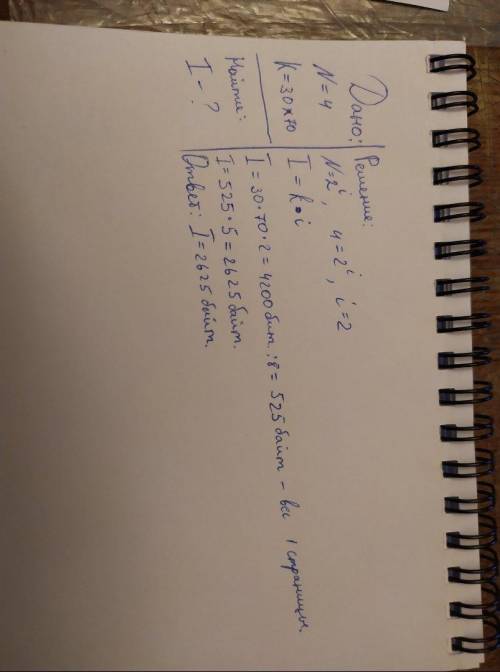 Дано:
N=4
K=30×70
Найти:
I-?
Решение:
N=2^i, 4=2^i, i=2
I=k•i
I=30•70•2=4200бит:8=525байт - вес 1 страницы.
I=525•5=2625байт.
Ответ: I=2625байт.